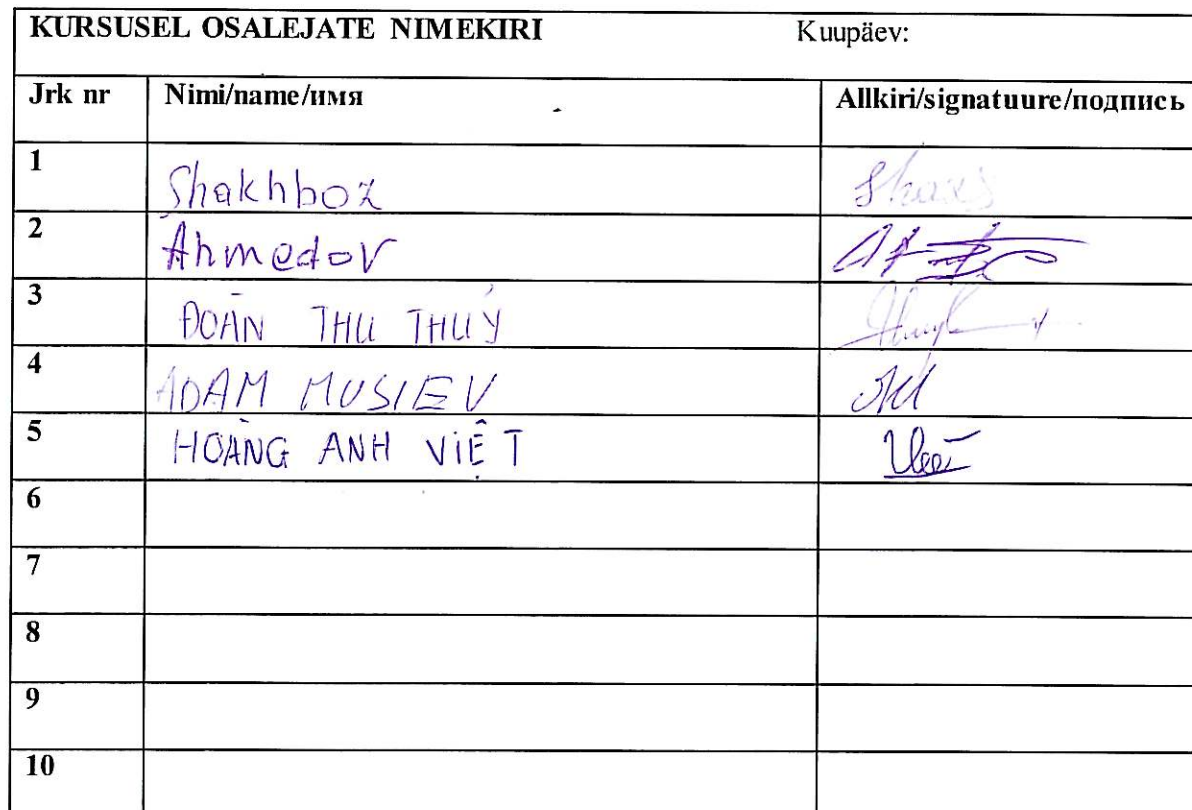 KURSUSEL OSALEJATE NIMEKIRI Kuupäev:
Jrk nr Nimi/name/имя Allkiri/signatuure/подпись
1 Shakhboz
2 Ahmedov
3 ĐOÀN THU THUỶ
4 ADAM MUSIEV
5 HOÀNG ANH VIỆT
6
7
8
9
10